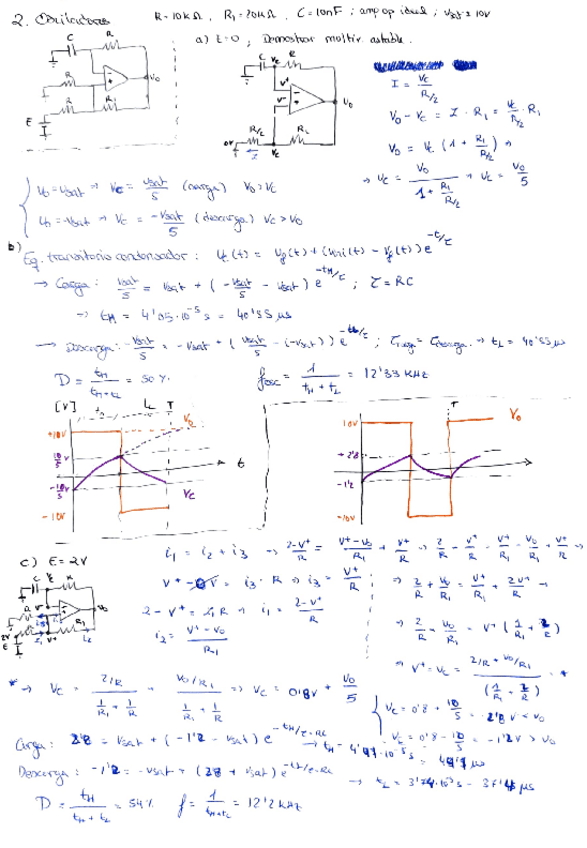 2. Osciladores
R = 10kΩ, R₁ = 20kΩ, C = 10nF; amp op ideal; Vsat = 10V
a) E=0; Demostrar multiv. astable.
I = Vc / R/2
V₀ - Vc = I · R₁ = Vc / R/2 · R₁
V₀ = Vc (1 + R₁ / R/2) →
→ Vc = V₀ / 1 + R₁ / R/2 → Vc = V₀ / 5
V₀ = Vsat → Vc = Vsat / 5 (carga) V₀ > Vc
V₀ = -Vsat → Vc = -Vsat / 5 (descarga) Vc > V₀
b) Eq. transitorio condensador: Vc(t) = Vf(t) + (Vini(t) - Vf(t)) e^-t/τ
→ Carga: Vsat / 5 = Vsat + (-Vsat / 5 - Vsat) e^-tH/τ; τ = RC
→ tH = 4'05·10⁻⁵ s = 40'55 μs
→ Descarga: -Vsat / 5 = -Vsat + (Vsat / 5 - (-Vsat)) e^-tL/τ; τcarga = τdescarga → tL = 40'55 μs
D = tH / tH + tL = 50 %
fosc = 1 / tH + tL = 12'33 kHz
[V] tH tL T
+10V V₀
10/5 V
t
-10/5 V Vc
-10V
10V T V₀
+2'8
-1'2
-10V
c) E = 2V
i₁ = i₂ + i₃ → 2-V⁺ / R = V⁺-V₀ / R₁ + V⁺ / R → 2/R - V⁺/R = V⁺/R₁ - V₀/R₁ + V⁺/R →
V⁺ - 0V = i₃ · R → i₃ = V⁺ / R
→ 2/R + V₀/R₁ = V⁺/R₁ + 2V⁺/R →
2 - V⁺ = i₁ R → i₁ = 2-V⁺ / R
→ 2/R + V₀/R₁ = V⁺ (1/R₁ + 2/R)
i₂ = V⁺ - V₀ / R₁
→ V⁺ = Vc = 2/R + V₀/R₁ / (1/R₁ + 2/R) → *
* → Vc = 2/R / 1/R₁ + 2/R + V₀/R₁ / 1/R₁ + 2/R → Vc = 0'8V + V₀ / 5
Vc = 0'8 + 10/5 = 2'8 V < V₀
Vc = 0'8 - 10/5 = -1'2V > V₀
Carga: 2'8 = Vsat + (-1'2 - Vsat) e^-tH/τ=RC
Descarga: -1'2 = -Vsat + (2'8 + Vsat) e^-tL/τ=RC
D = tH / tH + tL = 54%
f = 1 / tH+tL = 12'2 kHz